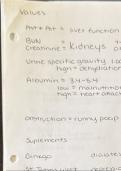 Values
AlT + AST = liver function
BUN
Creatinine = Kidneys
Urine specific gravity
high = dehydration
Albumin = 3.4-5.4
low = malnutrition
high = heart attack
obstruction = runny poop
Suplements
Ginkgo
St